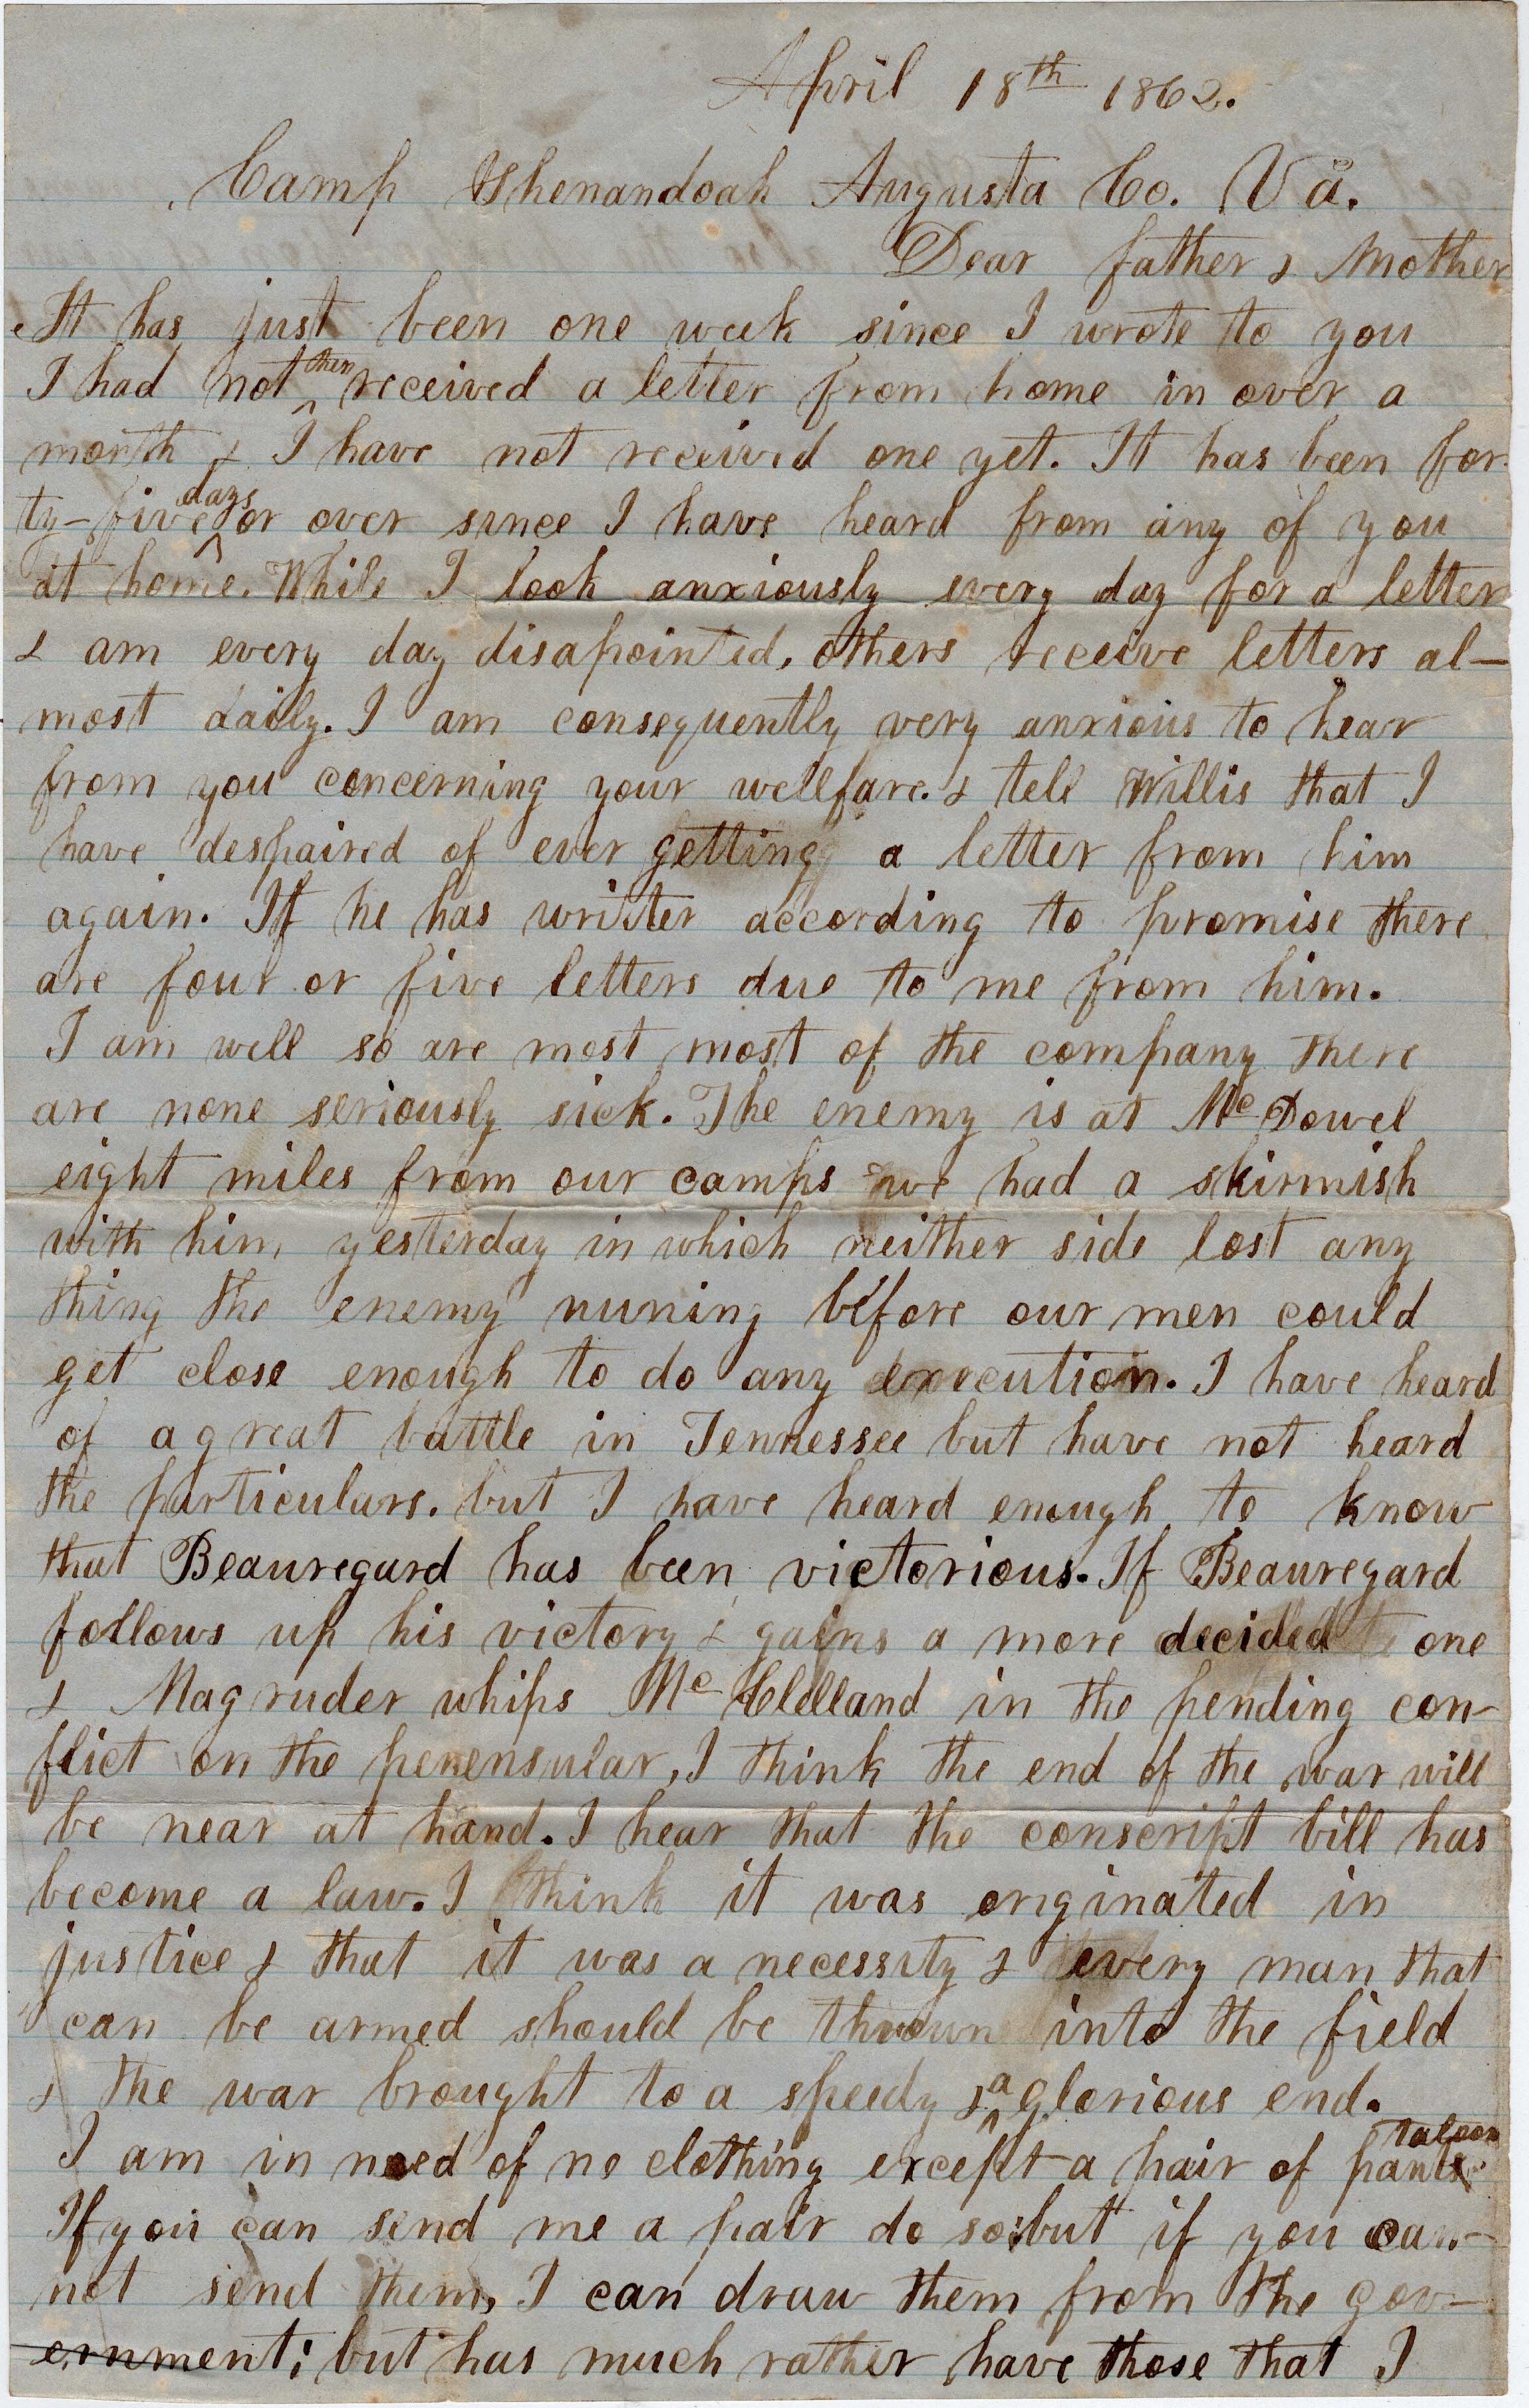 April 18th 1862.
Camp Shenandoah Augusta Co. Va.
Dear father & Mother
It has just been one week since I wrote to you
I had not then received a letter from home in over a
month & I have not received one yet. It has been for-
ty-five days or over since I have heard from any of you
at home. While I look anxiously every day for a letter
& am every day disapointed, others receive letters al-
most daily. I am consequently very anxious to hear
from you concerning your wellfare. & tell Willis that I
have despaired of ever getting a letter from him
again. If he has writter according to promise there
are four or five letters due to me from him.
I am well so are most most of the company there
are none seriously sick. The enemy is at McDowel
eight miles from our camps we had a skirmish
with him yesterday in which neither side lost any
thing the enemy runing before our men could
get close enough to do any execution. I have heard
of a great battle in Tennessee but have not heard
the particulars. but I have heard enough to know
that Beauregard has been victorious. If Beauregard
follows up his victory & gains a more decided one
& Magruder whips McClelland in the pending con-
flict on the penensular, I think the end of the war will
be near at hand. I hear that the conscript bill has
become a law. I think it was originated in
justice & that it was a necessity & every man that
can be armed should be thrown into the field
& the war brought to a speedy & a glorious end.
I am in need of no clothing except a pair of pantaloon
If you can send me a pair do so: but if you can-
not send them, I can draw them from the gov-
ernment; but has much rather have those that I